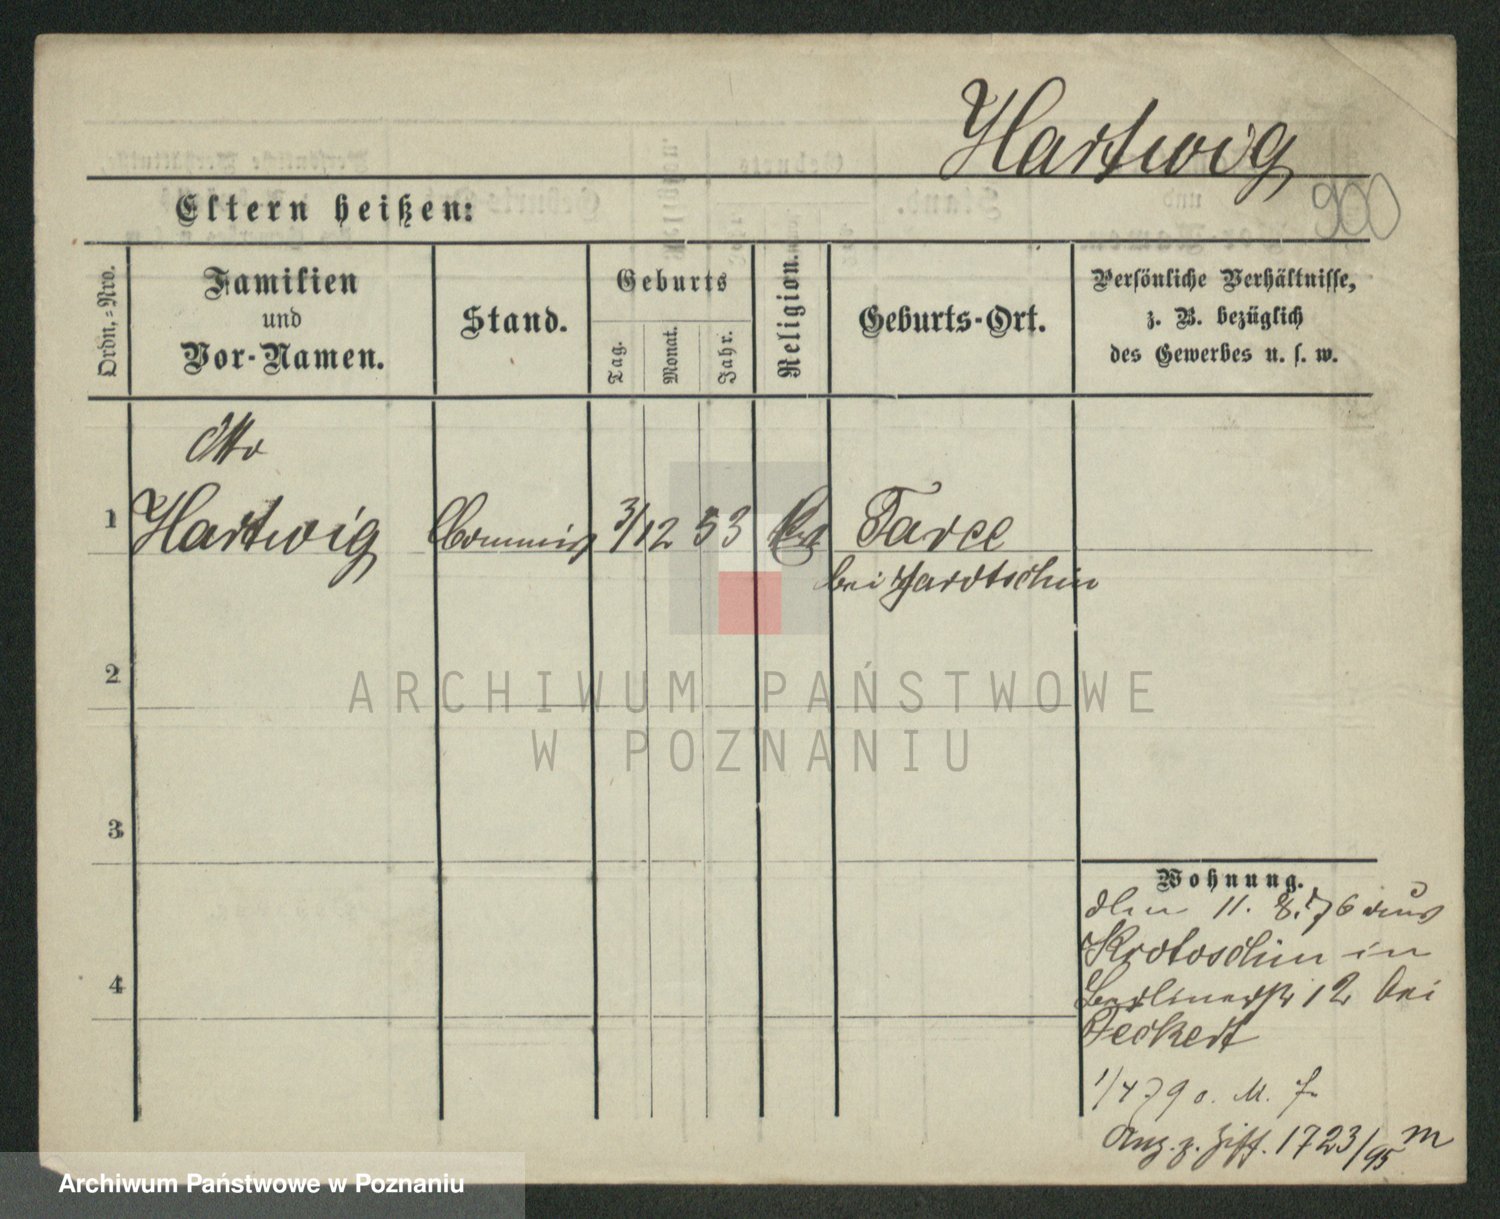 Hartwig
900
Eltern heißen:
Ordn.-Nro.
Familien
und
Vor-Namen.
Stand.
Geburts
Tag.
Monat.
Jahr.
Religion.
Geburts-Ort.
Persönliche Verhältnisse,
z. B. bezüglich
des Gewerbes u. s. w.
Otto
1 Hartwig Commis 3/12 53 Tarce
bei Jarotschin
2
3
4
Wohnung.
den 11. 8. 76 aus
Krotoschin in
Berlinerstr 12 bei
Deckert
1/4 79 o. M. f.
Anz. z. Ziff. 1723/95 M
ARCHIWUM PAŃSTWOWE
W POZNANIU
Archiwum Państwowe w Poznaniu